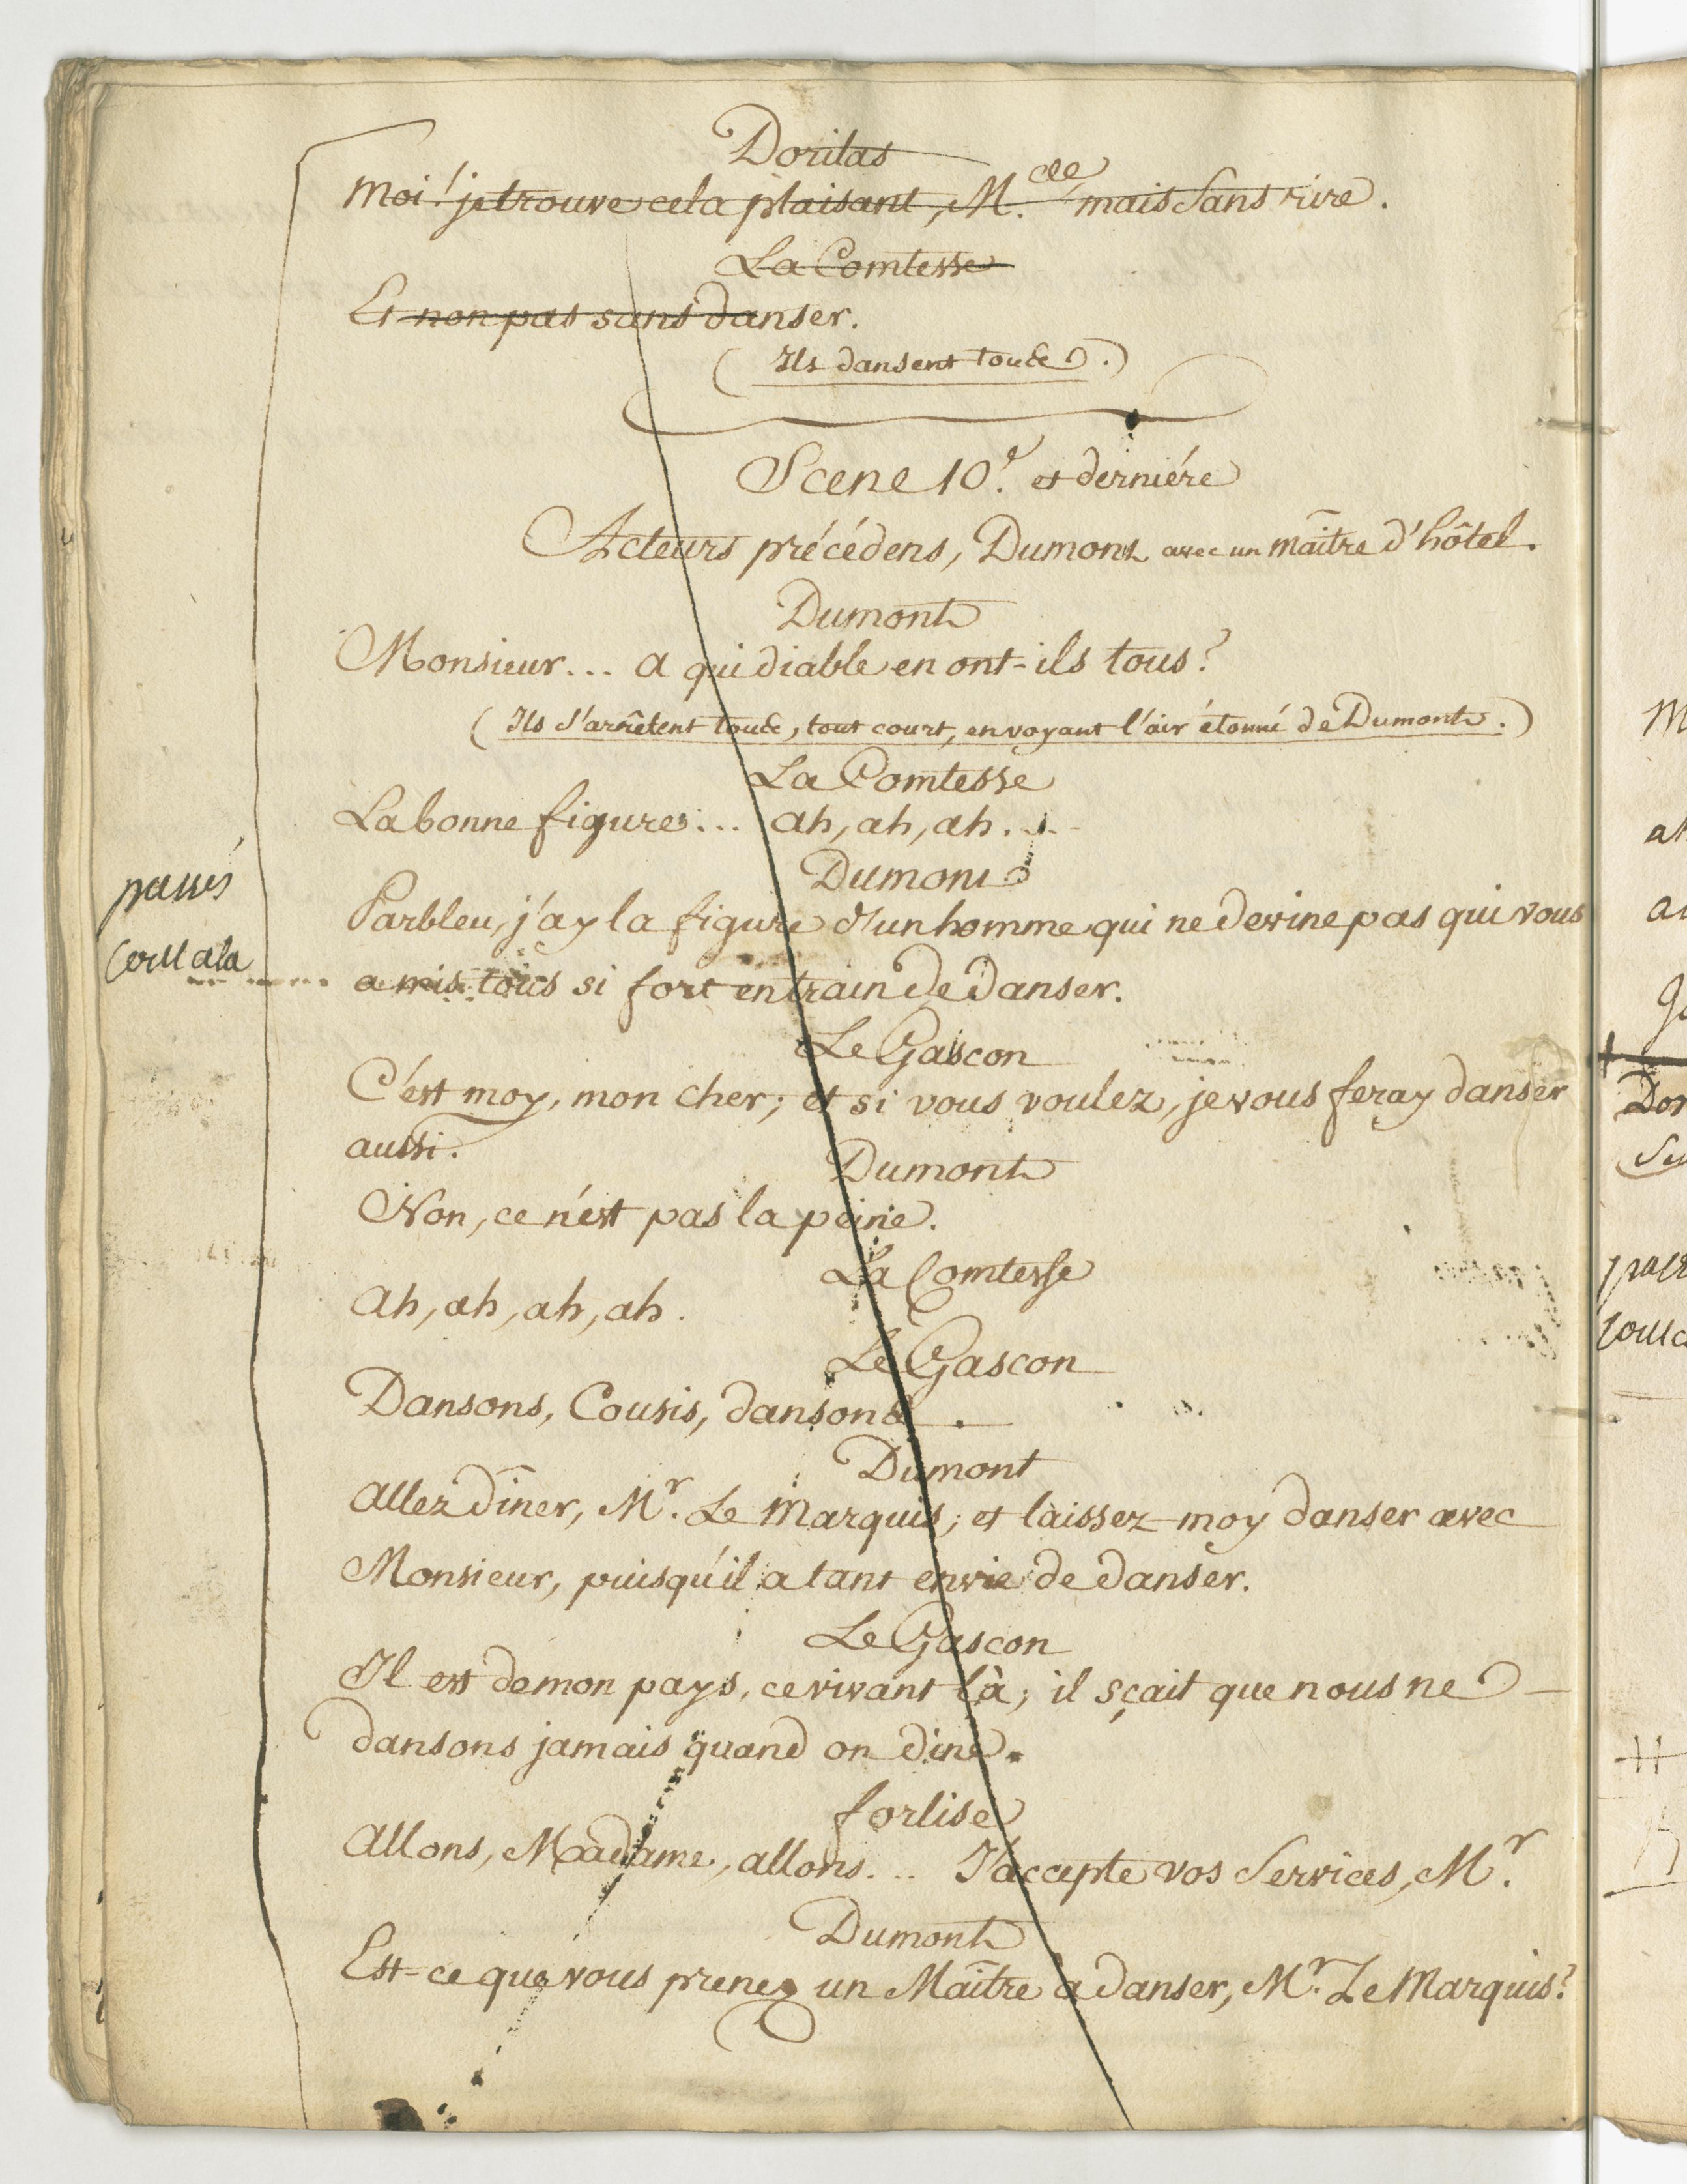 Dorilas
Moi! je trouve cela plaisant, M.elle mais sans rire.
La Comtesse
Et non pas sans danser.
(Ils dansent tous.)
Scene 10.e et derniére
Acteurs précédens, Dumont avec un maître d'hôtel.
Dumont
Monsieur... a qui diable en ont-ils tous?
(Ils s'arrêtent tous, tout court, en voyant l'air étonné de Dumont.)
La Comtesse
La bonne figure... ah, ah, ah...
Dumont
Parbleu, j'ay la figure d'un homme qui ne devine pas qui vous
passés
tout cela
a mis tous si fort en train de danser.
Le Gascon
C'est moy, mon cher; et si vous voulez, je vous feray danser
aussi.
Dumont
Non, ce n'est pas la peine.
La Comtesse
Ah, ah, ah, ah.
Le Gascon
Dansons, Cousis, dansons.
Dumont
Allez dîner, Mr. Le Marquis; et laissez-moy danser avec
Monsieur, puisqu'il a tant envie de danser.
Le Gascon
Il est de mon pays, ce vivant là; il sçait que nous ne
dansons jamais quand on dine.
forlise
Allons, Madame, allons... J'accepte vos Services, Mr.
Dumont
Est-ce que vous prenez un Maître à danser, Mr. Le Marquis?